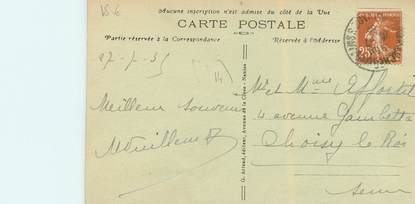 VS 6
Aucune inscription n'est admise du côté de la Vue
CARTE POSTALE
Partie réservée à la Correspondance
Réservée à l'Adresse
27-7-35
14
25
Meilleur souvenir
G. Artaud, éditeur, Avenue de la Close - Nantes
Mr et Mme
4 avenue Gambetta
Choisy le Roi
Seine